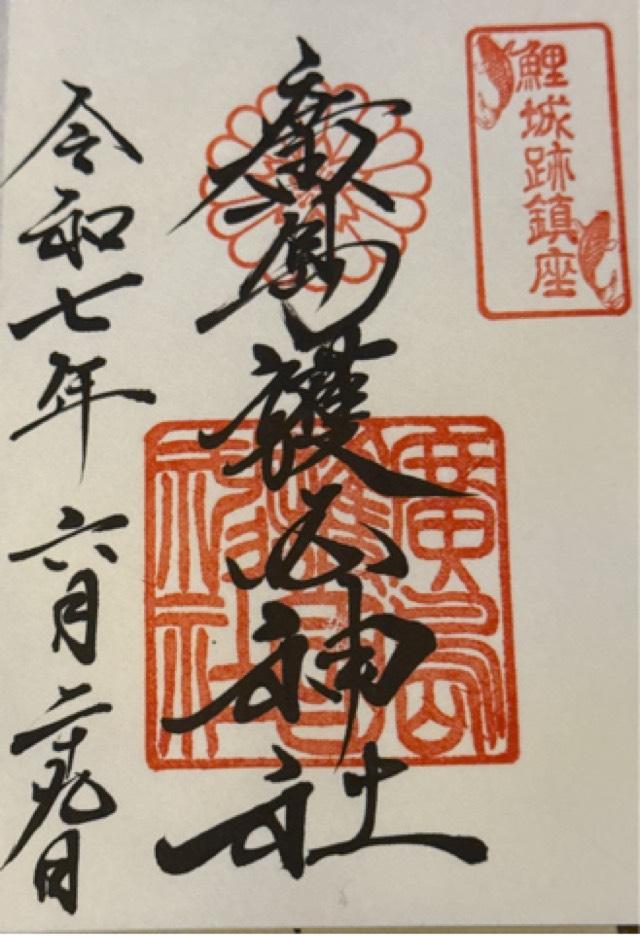 鯉城跡鎮座
廣島護國神社
廣島
護國
神社
令和七年六月二十九日